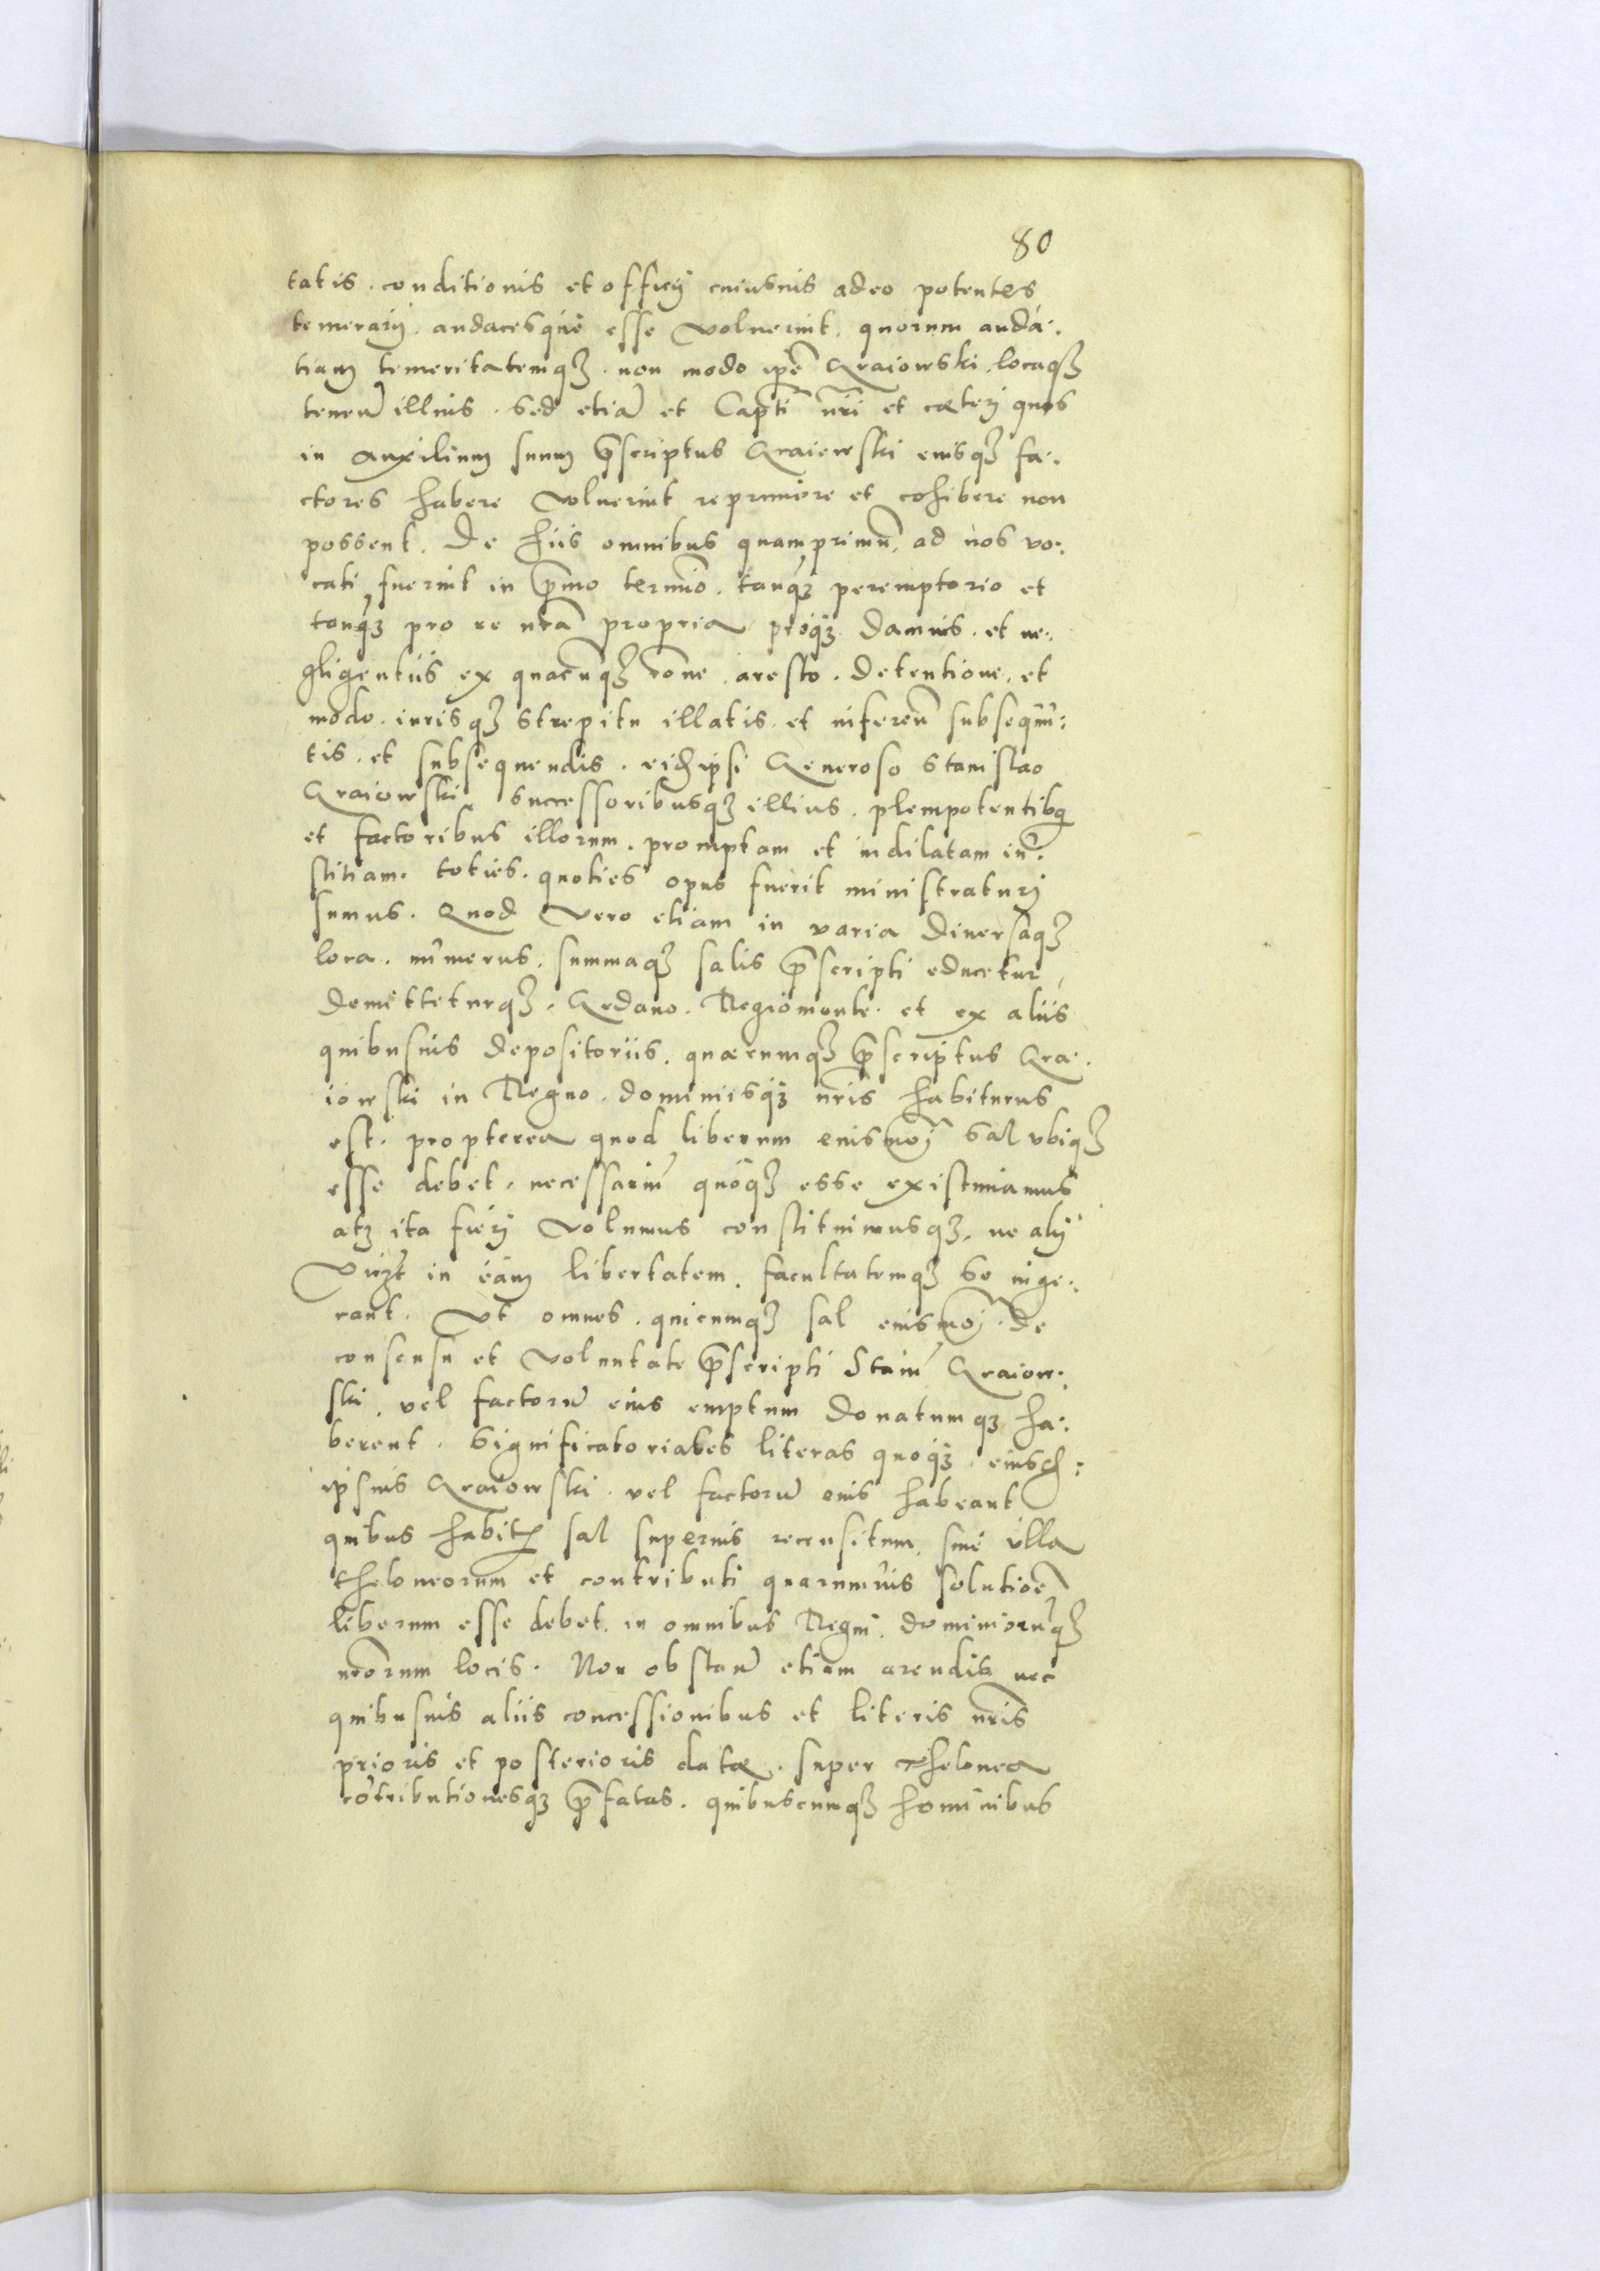 80
tatis. conditionis et officij cuiusuis adeo potentes,
temerarij. audacesque esse voluerint. quorum auda:
tiam temeritatemqȝ. non modo ip̄e Graiowski, locaqȝ
teneñ illius. sed etiā et Capt̄i nr̄i et cæteri quos
in auxilium suum p̄scriptus Graiewski eiusqȝ fa:
ctores habere voluerint reprimere et cohibere non
possent. De hiis omnibus quamprimū, ad nos vo:
cati fuerint in p̄mo termīo. tanqȝ peremptorio et
tanqȝ pro re nr̄a propria proqȝ damnis. et ne:
gligentiis ex quacūqȝ rōne. aresto. detentione, et
modo. iurisqȝ strepitu illatis et infereñ subsequē:
tis. et subsequendis. eid̄ ipsi Generoso Stanislao
Graiowski successoribusqȝ illius. plenipotentibq
et factoribus illorum. promptam et indilatam iu:
stitiam. toties. quoties opus fuerit ministraturi
sumus. Quod vero etiam in varia diuersaqȝ
loca. numerus. summaqȝ salis p̄scripti educetur,
demitteturqȝ. Gedano. Regiomonte. et ex aliis
quibusuis depositoriis. quæcumqȝ p̄scriptus Gra:
iowski in Regno. dominiisqȝ nr̄is habiturus
est. propterea quod liberum eiusmōi sal vbiqȝ
esse debet. necessariū quoqȝ esse existimamus
atqȝ ita fieri volumus constituimusqȝ. ne alij
in eam libertatem. facultatemqȝ se inge:
rant. Vt omnes. quicumqȝ sal eiusmōi de
consensu et voluntate p̄scripti Stanī Graiow:
ski. vel factorū eius emptum donatumqȝ ha:
berent. significatoriales literas quoqȝ. eiusd̄:
ipsius Graiowski. vel factorū eius habeant
quibus habitȝ sal superius recensitum, sine vlla
theloneorum et contributi quarumuis solutiōe
liberum esse debet. in omnibus Regni. dominiorūqȝ
nr̄orum locis. Non obstañ etiam arendis nec
quibusuis aliis concessionibus et literis nr̄is
prioris et posterioris datæ. super thelonea
cōtributionesqȝ p̄fatas. quibuscumqȝ hominibus